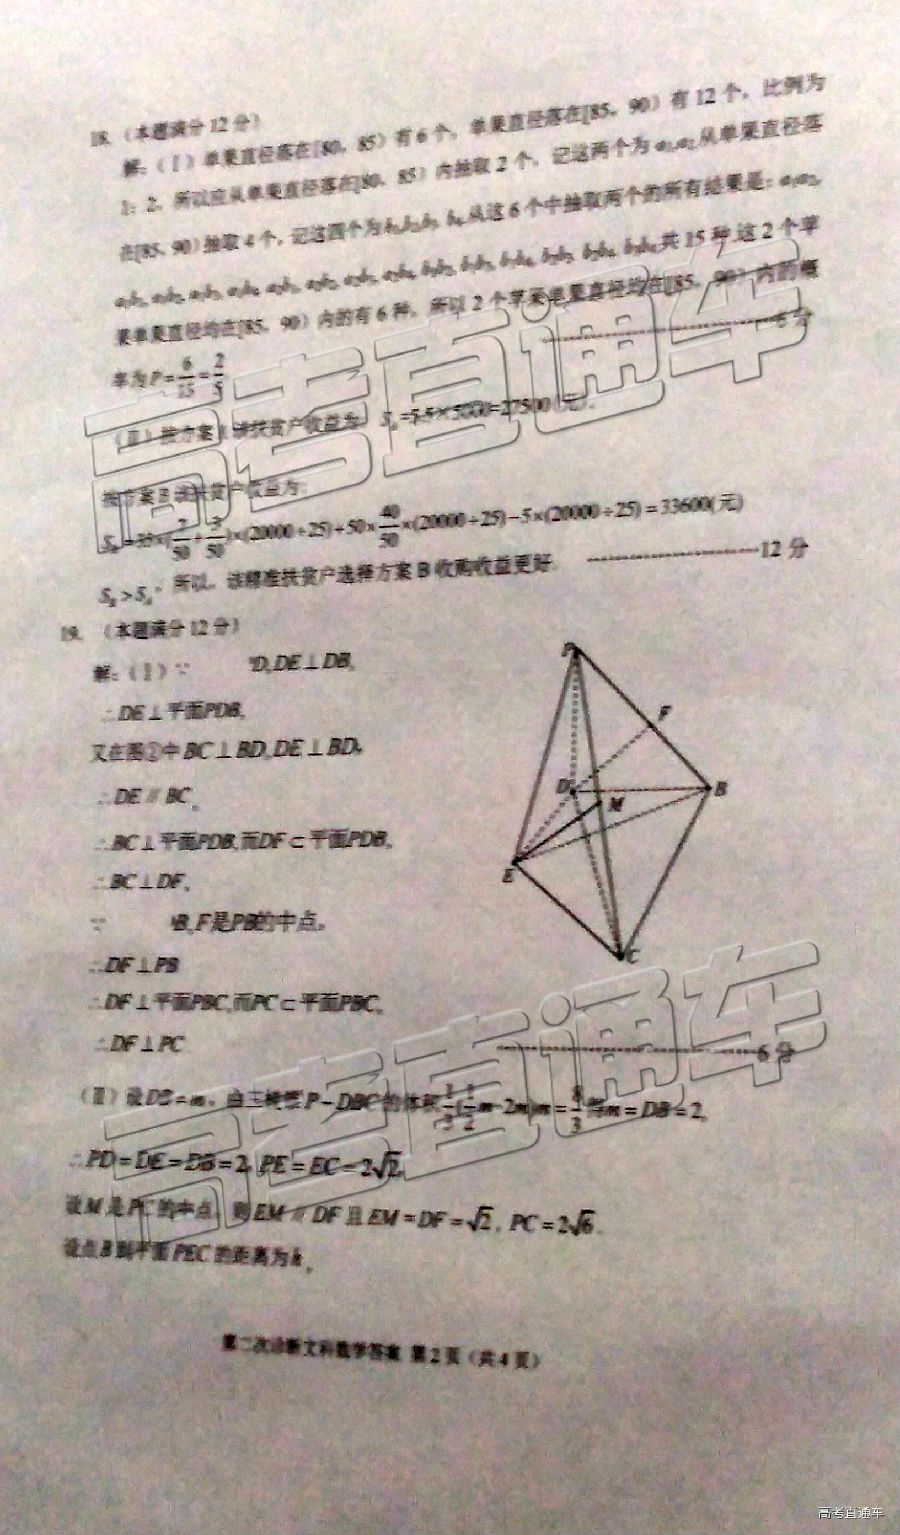 18. （本题满分12分）
解：（Ⅰ）单果直径落在[80，85）有6个，单果直径落在[85，90）有12个，比例为
1：2，所以应从单果直径落在[80，85）内抽取2个，记这两个为a₁,a₂.从单果直径落
在[85，90）抽取4个，记这四个为b₁,b₂,b₃,b₄.从这6个中抽取两个的所有结果是：a₁a₂,
a₁b₁, a₁b₂, a₁b₃, a₁b₄, a₂b₁, a₂b₂, a₂b₃, a₂b₄, b₁b₂, b₁b₃, b₁b₄, b₂b₃, b₂b₄, b₃b₄.共15种.这2个苹
果单果直径均在[85，90）内的有6种，所以2个苹果单果直径均在[85，90）内的概
率为P=6/15=2/5 6分
（Ⅱ）按方案A该扶贫户收益为：S_A=5.5×5000=27500(元).
按方案B该扶贫户收益为：
×(20000÷25)+50×40/50×(20000÷25)−5×(20000÷25)=33600(元)
S_B>S_A，所以，该精准扶贫户选择方案B收购收益更好. 12分
19. （本题满分12分）
解：（Ⅰ）∵ D,DE⊥DB,
∴DE⊥平面PDB,
又在图②中BC⊥BD,DE⊥BD,
∴DE∥BC,
∴BC⊥平面PDB,而DF⊂平面PDB,
∴BC⊥DF,
∵ B,F是PB的中点,
∴DF⊥PB
∴DF⊥平面PBC,而PC⊂平面PBC,
∴DF⊥PC 6分
P
F
D
B
M
E
C
（Ⅱ）设DB=m，由三棱锥P−DBC的体积1/3(1/2m·2m)m=8/3得m=DB=2,
∴PD=DE=DB=2, PE=EC=2√2,
设M是PC的中点，则EM∥DF且EM=DF=√2，PC=2√6.
设点B到平面PEC的距离为h，
第二次诊断文科数学答案 第2页（共4页）
高考直通车
高考直通车
高考直通车